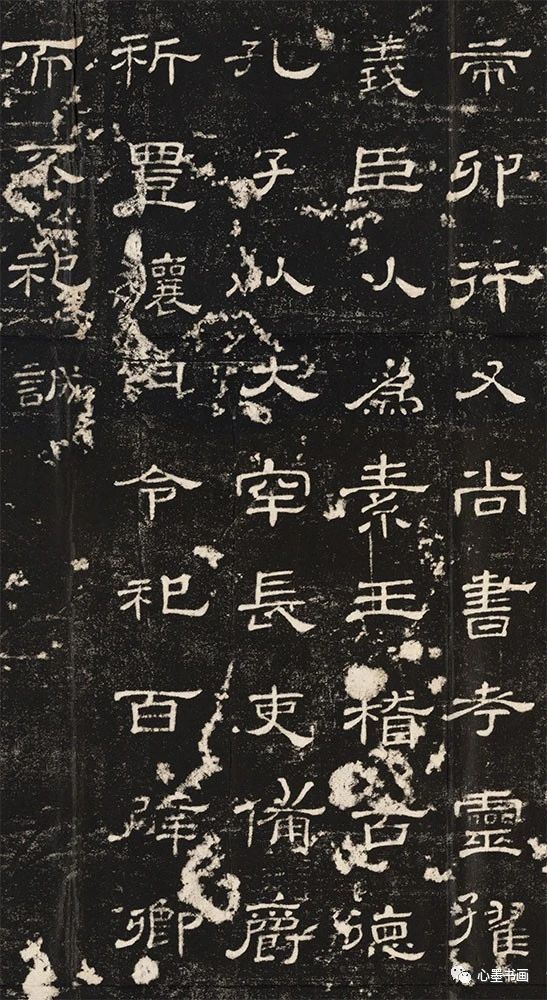 帝卯行又尚書考靈燿
義臣以為素王稽古德
孔子以大牢長吏備爵
祈豊穰月令祀百辟卿
而不祀誠
心墨书画